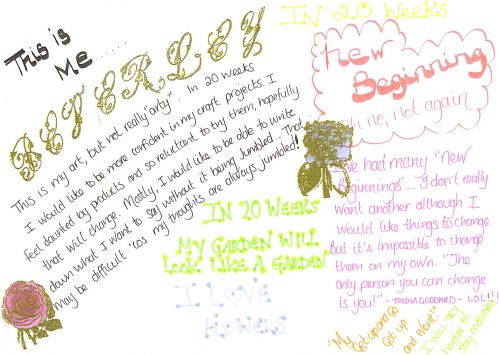 This is
Me......
BEVERLEY
This is my art, but not really "arty". In 20 Weeks
I would like to be more confident in my craft projects. I
feel daunted by products and so reluctant to try them, hopefully
that will change. Mostly, I would like to be able to write
down what I want to say without it being jumbled... That
may be difficult 'cos my thoughts are always jumbled!
IN 20 WEEKS
New
Beginning
oh no, not again
I've had many "new
Beginnings"... I don't really
want another although I
would like things to change
But it's impossible to change
them on my own. "The
only person you can change
is you!" - TRISHA GODDARD - LOL!!!
IN 20 WEEKS
MY GARDEN WILL
LOOK LIKE A GARDEN
I LOVE
FLOWERS
"My
Get up and Go
Got up
and Went"
I will try
harder to
stay motivated!